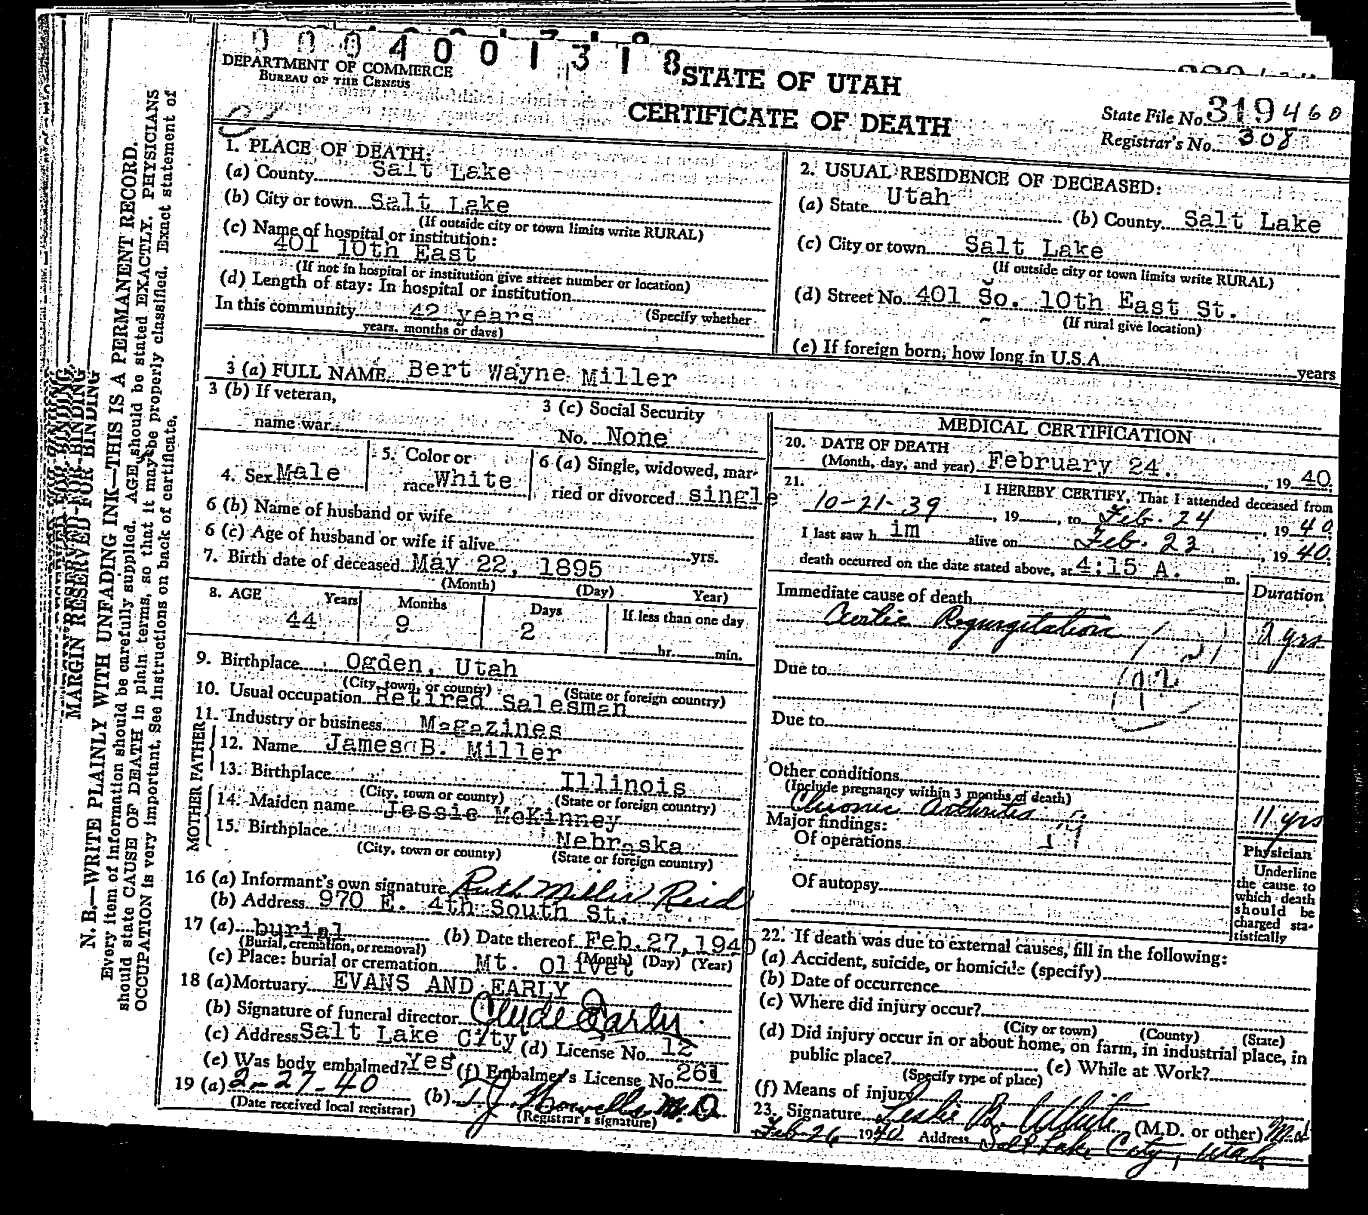 0004001318
DEPARTMENT OF COMMERCE
BUREAU OF THE CENSUS
STATE OF UTAH
CERTIFICATE OF DEATH
State File No. 319460
Registrar's No. 308
MARGIN RESERVED FOR BINDING
N. B.—WRITE PLAINLY WITH UNFADING INK—THIS IS A PERMANENT RECORD.
Every item of information should be carefully supplied. AGE should be stated EXACTLY. PHYSICIANS
should state CAUSE OF DEATH in plain terms, so that it may be properly classified. Exact statement of
OCCUPATION is very important. See instructions on back of certificate.
1. PLACE OF DEATH:
(a) County Salt Lake
(b) City or town Salt Lake
(If outside city or town limits write RURAL)
(c) Name of hospital or institution:
401 10th East
(If not in hospital or institution give street number or location)
(d) Length of stay: In hospital or institution
In this community 42 years (Specify whether
years, months or days)
2. USUAL RESIDENCE OF DECEASED:
(a) State Utah (b) County Salt Lake
(c) City or town Salt Lake
(If outside city or town limits write RURAL)
(d) Street No. 401 So. 10th East St.
(If rural give location)
(e) If foreign born, how long in U.S.A. years
3 (a) FULL NAME Bert Wayne Miller
3 (b) If veteran,
name war
3 (c) Social Security
No. None
4. Sex Male
5. Color or
race White
6 (a) Single, widowed, mar-
ried or divorced single
6 (b) Name of husband or wife
6 (c) Age of husband or wife if alive yrs.
7. Birth date of deceased May 22, 1895
(Month) (Day) Year)
8. AGE Years Months Days If less than one day
44 9 2 hr. min.
9. Birthplace Ogden, Utah
(City, town, or county) (State or foreign country)
10. Usual occupation Retired Salesman
11. Industry or business Magazines
MOTHER FATHER
12. Name James B. Miller
13. Birthplace Illinois
(City, town or county) (State or foreign country)
14. Maiden name Jessie McKinney
15. Birthplace Nebraska
(City, town or county) (State or foreign country)
16 (a) Informant's own signature Ruth Miller Reid
(b) Address 970 E. 4th South St.
17 (a) burial (b) Date thereof Feb.27,1940
(Burial, cremation, or removal) (Month) (Day) (Year)
(c) Place: burial or cremation Mt. Olivet
18 (a) Mortuary EVANS AND EARLY
(b) Signature of funeral director Clyde Early
(c) Address Salt Lake City (d) License No. 12
(e) Was body embalmed? Yes (f) Embalmer's License No. 261
19 (a) 2-27-40 (b) M.D.
(Date received local registrar) (Registrar's signature)
MEDICAL CERTIFICATION
20. DATE OF DEATH
(Month, day, and year) February 24. , 19 40
21. I HEREBY CERTIFY, That I attended deceased from
10-21-39 , 19 , to Feb. 24 , 19 40
I last saw h im alive on Feb. 23 , 19 40
death occurred on the date stated above, at 4:15 A. m.
Immediate cause of death Duration
Aortic Regurgitation 2 yrs
Due to
92
Due to
Other conditions
(Include pregnancy within 3 months of death)
Chronic arthritis 11 yrs
Major findings:
Of operations
Of autopsy
Physician
Underline
the cause to
which death
should be
charged sta-
tistically
22. If death was due to external causes, fill in the following:
(a) Accident, suicide, or homicide (specify)
(b) Date of occurrence
(c) Where did injury occur?
(City or town) (County) (State)
(d) Did injury occur in or about home, on farm, in industrial place, in
public place? (e) While at Work?
(Specify type of place)
(f) Means of injury
23. Signature Leslie B. White (M.D. or other) M.D.
Feb-26 1940 Address Salt Lake City, Utah